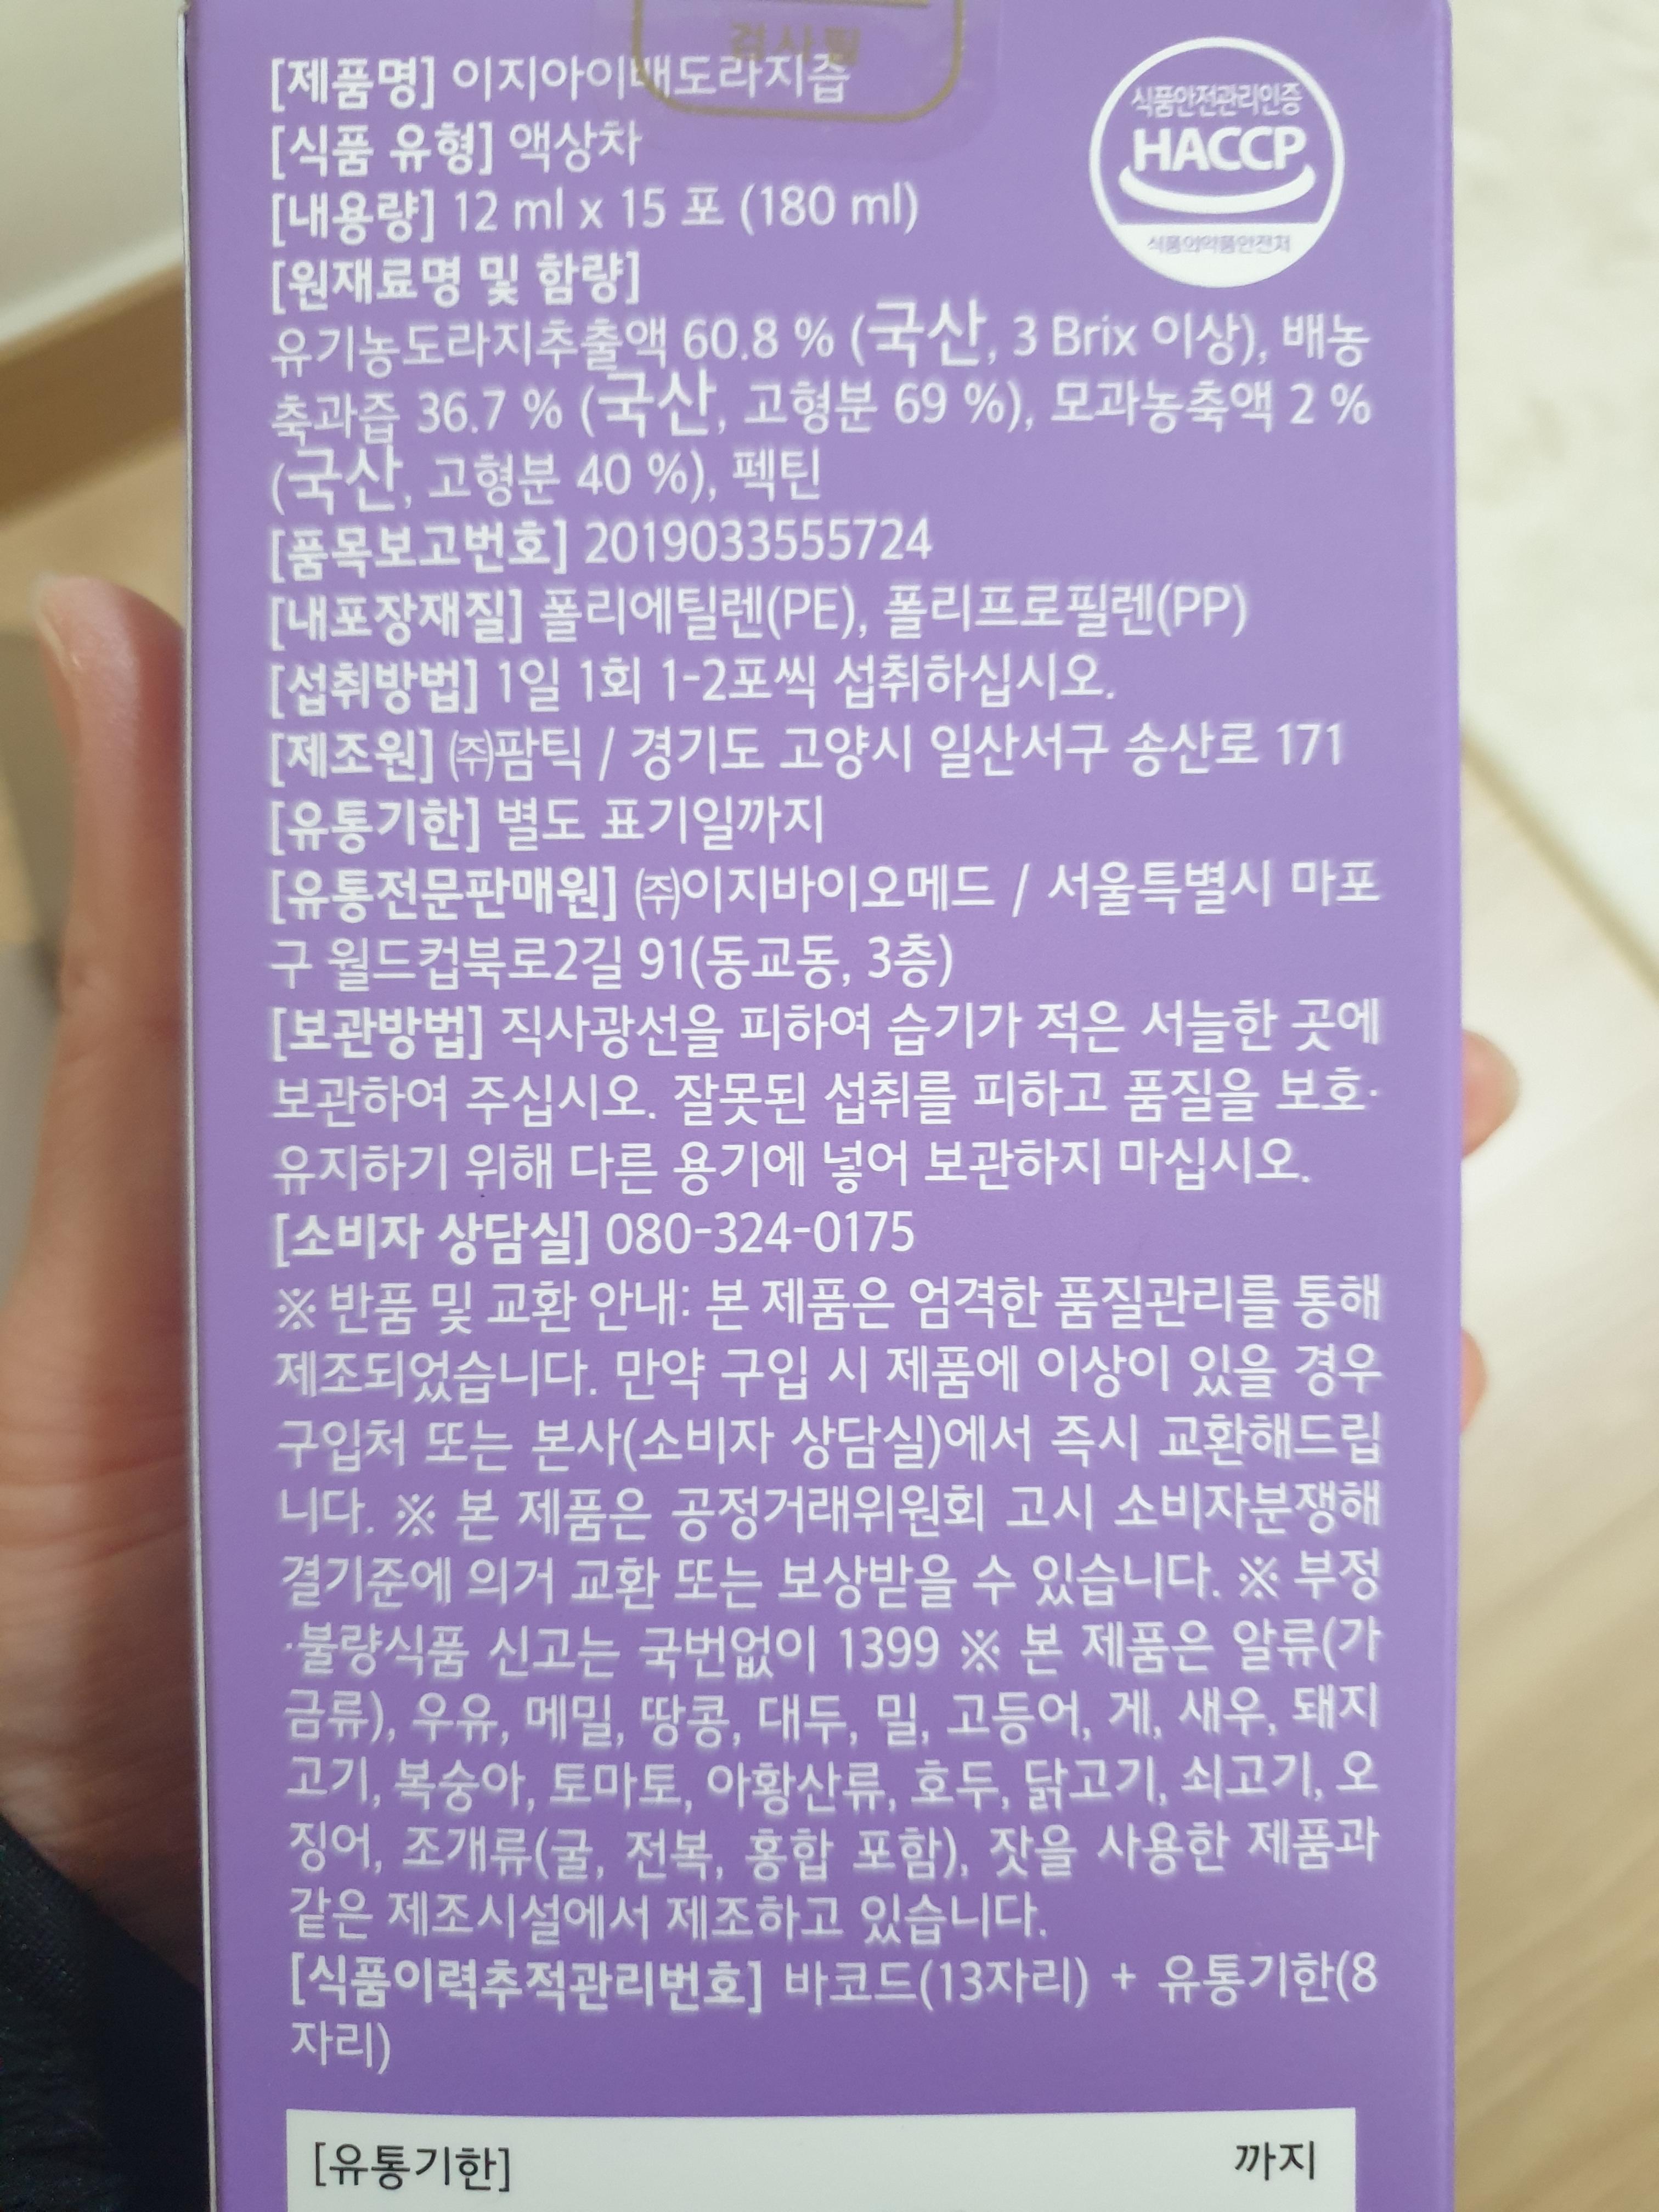 검사필
[제품명] 이지아이배도라지즙
식품안전관리인증
HACCP
식품의약품안전처
[식품 유형] 액상차
[내용량] 12 ml x 15 포 (180 ml)
[원재료명 및 함량]
유기농도라지추출액 60.8 % (국산, 3 Brix 이상), 배농
축과즙 36.7 % (국산, 고형분 69 %), 모과농축액 2 %
(국산, 고형분 40 %), 펙틴
[품목보고번호] 2019033555724
[내포장재질] 폴리에틸렌(PE), 폴리프로필렌(PP)
[섭취방법] 1일 1회 1-2포씩 섭취하십시오.
[제조원] ㈜팜틱 / 경기도 고양시 일산서구 송산로 171
[유통기한] 별도 표기일까지
[유통전문판매원] ㈜이지바이오메드 / 서울특별시 마포
구 월드컵북로2길 91(동교동, 3층)
[보관방법] 직사광선을 피하여 습기가 적은 서늘한 곳에
보관하여 주십시오. 잘못된 섭취를 피하고 품질을 보호·
유지하기 위해 다른 용기에 넣어 보관하지 마십시오.
[소비자 상담실] 080-324-0175
※ 반품 및 교환 안내: 본 제품은 엄격한 품질관리를 통해
제조되었습니다. 만약 구입 시 제품에 이상이 있을 경우
구입처 또는 본사(소비자 상담실)에서 즉시 교환해드립
니다. ※ 본 제품은 공정거래위원회 고시 소비자분쟁해
결기준에 의거 교환 또는 보상받을 수 있습니다. ※ 부정
·불량식품 신고는 국번없이 1399 ※ 본 제품은 알류(가
금류), 우유, 메밀, 땅콩, 대두, 밀, 고등어, 게, 새우, 돼지
고기, 복숭아, 토마토, 아황산류, 호두, 닭고기, 쇠고기, 오
징어, 조개류(굴, 전복, 홍합 포함), 잣을 사용한 제품과
같은 제조시설에서 제조하고 있습니다.
[식품이력추적관리번호] 바코드(13자리) + 유통기한(8
자리)
[유통기한] 까지